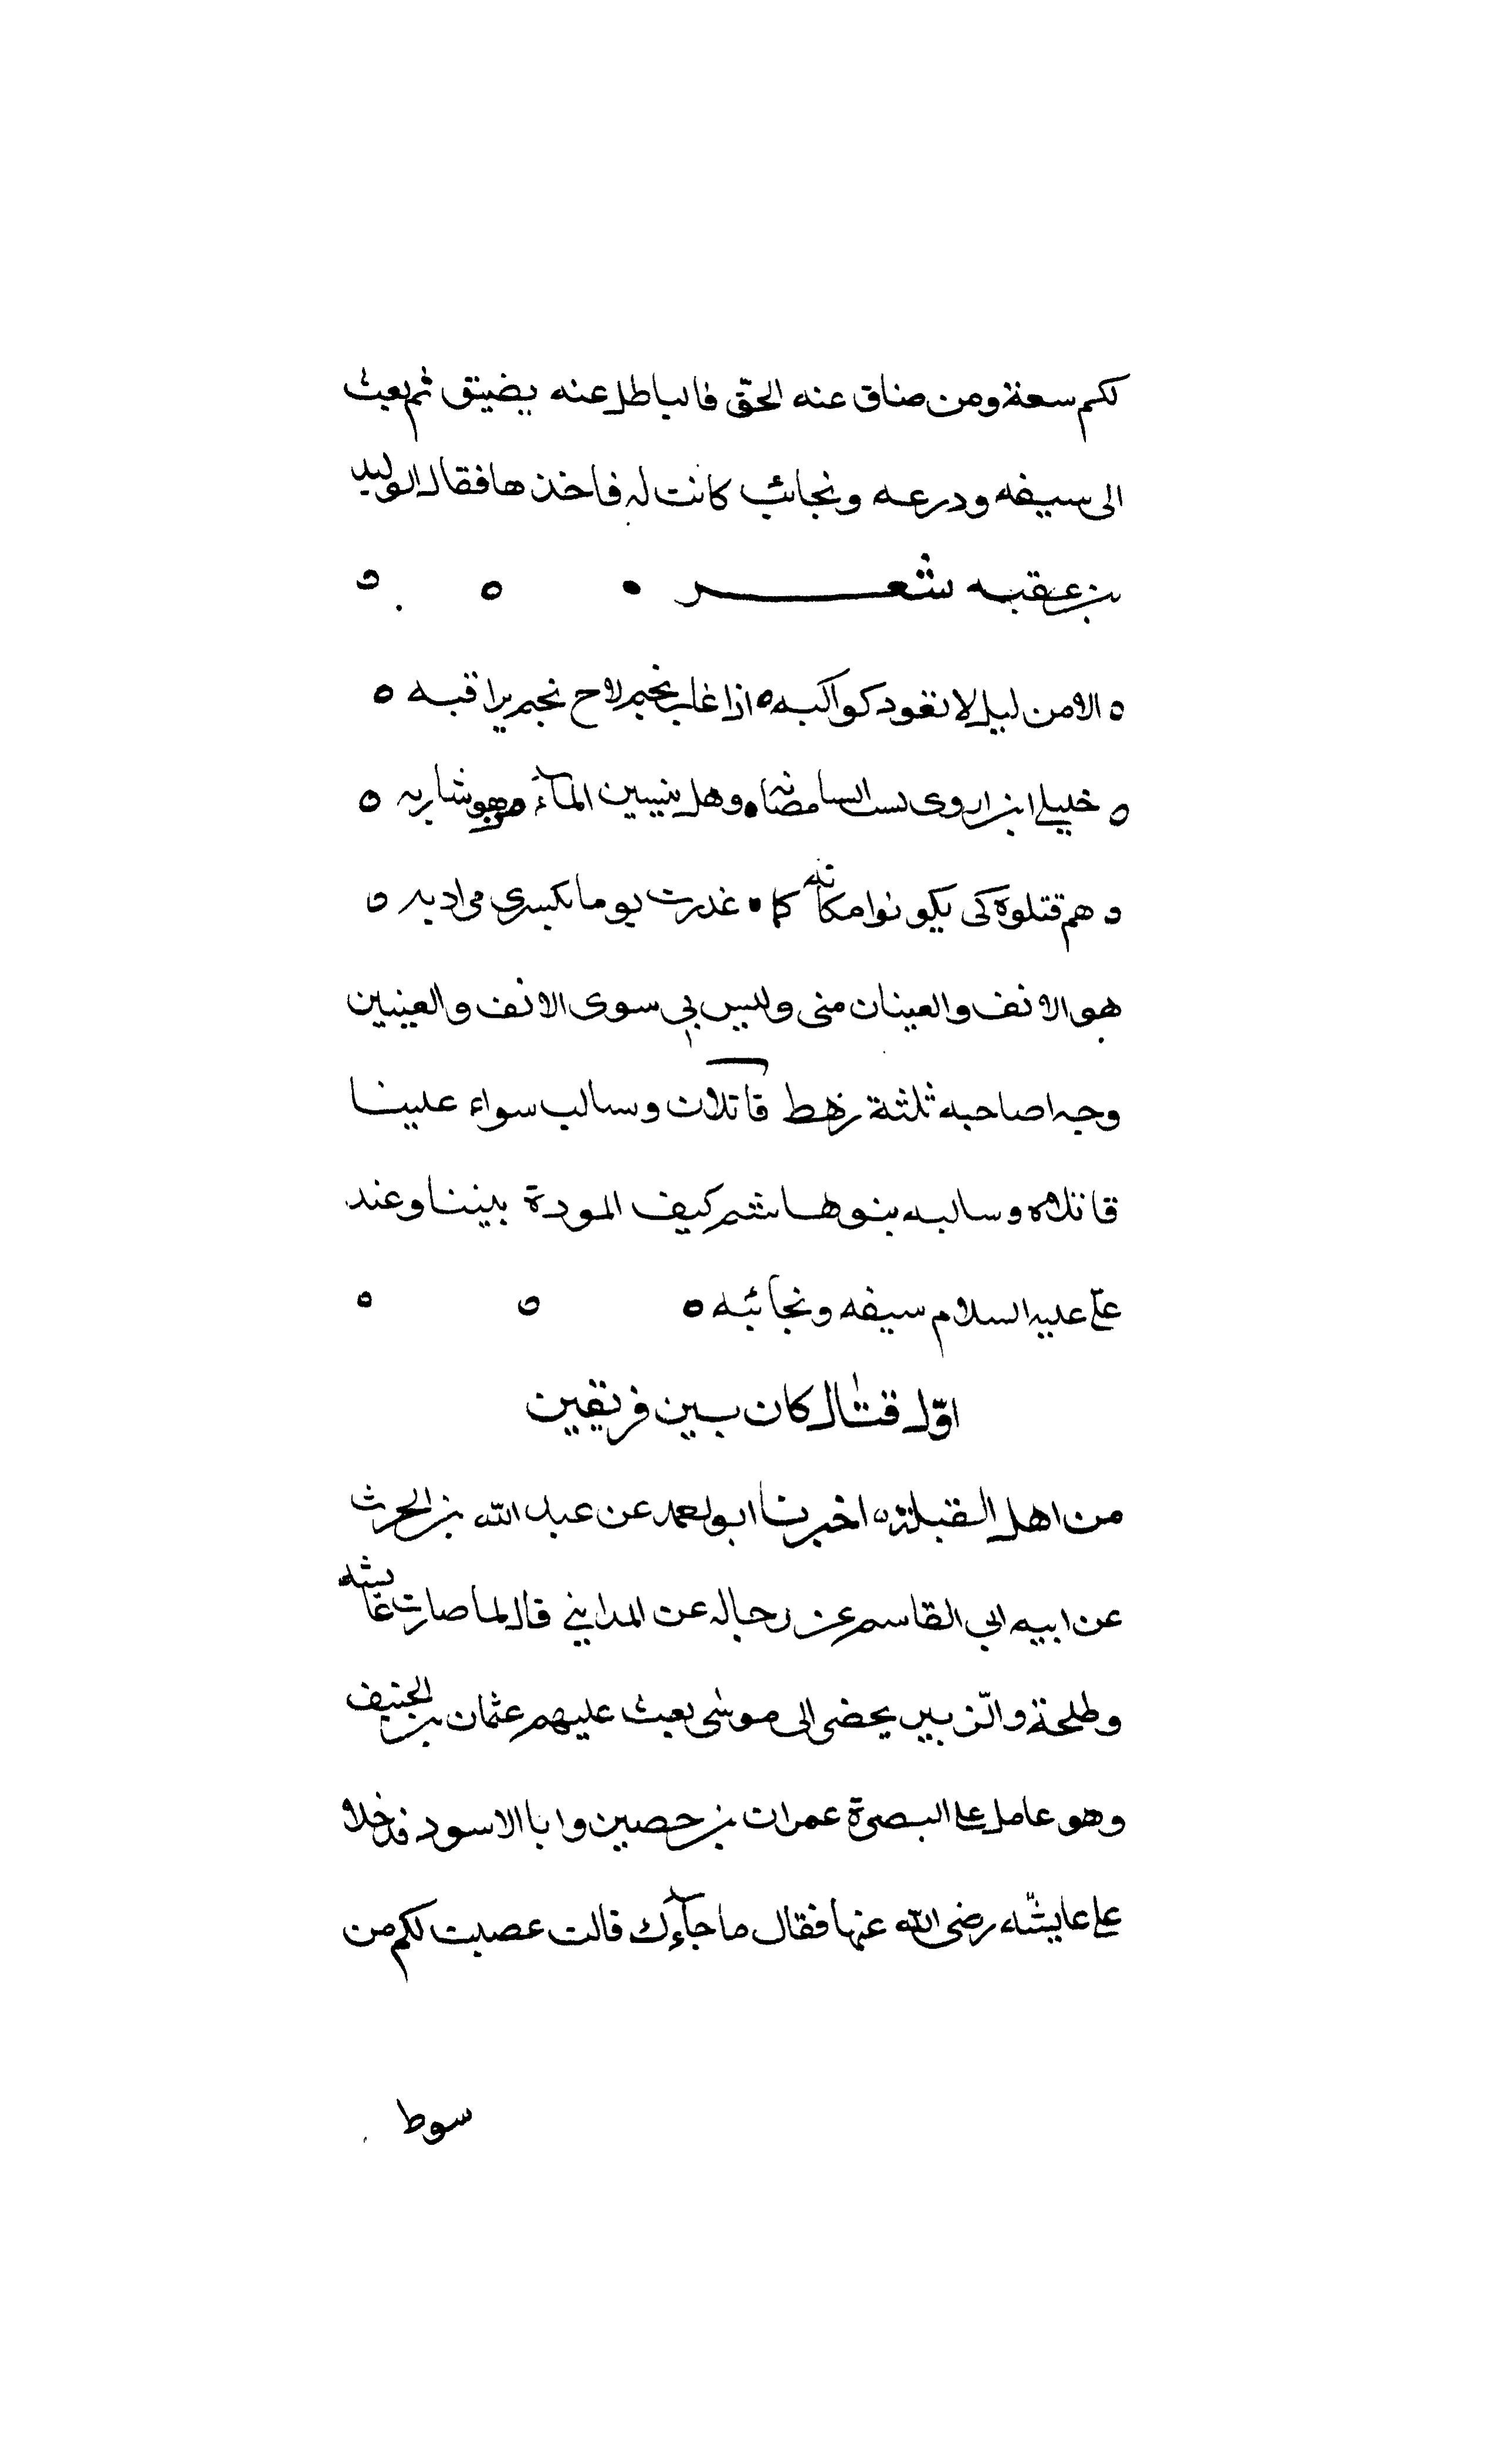 لكم سعة ومن ضاق عنه الحقّ فالباطل عنه يضيق ثم بعث
الى سيفه ودرعه ونجائب كانت له فاخذ ها فقال الوليد
بن عقبه شعر
الا من ليل لا تغود كواكبه اذا غاب نجم لاح نجم يراقبه
خليلي ابن اروى وهل ينسين المآء شاربه
هم قتلوه كى يكونوا مكانه كما غدرت يوما بكسرى مرادبه
هو الانف والعينان منى وليس لي سوى الانف والعينين
وجه اصاحبه ثلثة رهط قاتلان وسالب سواء علينا
قاتلاه وسالبه بنو هاشم كيف المودة بيننا وعند
علي عليه السلام سيفه ونجائبه
اوّل قتال كان بين فريقين
من اهل القبلة اخبرنا ابو عن عبد الله بن الحرث
عن ابيه ابي القاسم عن رجاله عن المدايني قال لما صارت عائشه
وطلحة والزبير بحضى الى موسى بعث عليهم عثمان بن الحنيف
وهو عامل على البصرة عمران بن حصين وابا الاسود فدخلا
على عايشه رضى الله عنها فقال ما جآءك قالت عصبت لكم من
سوط